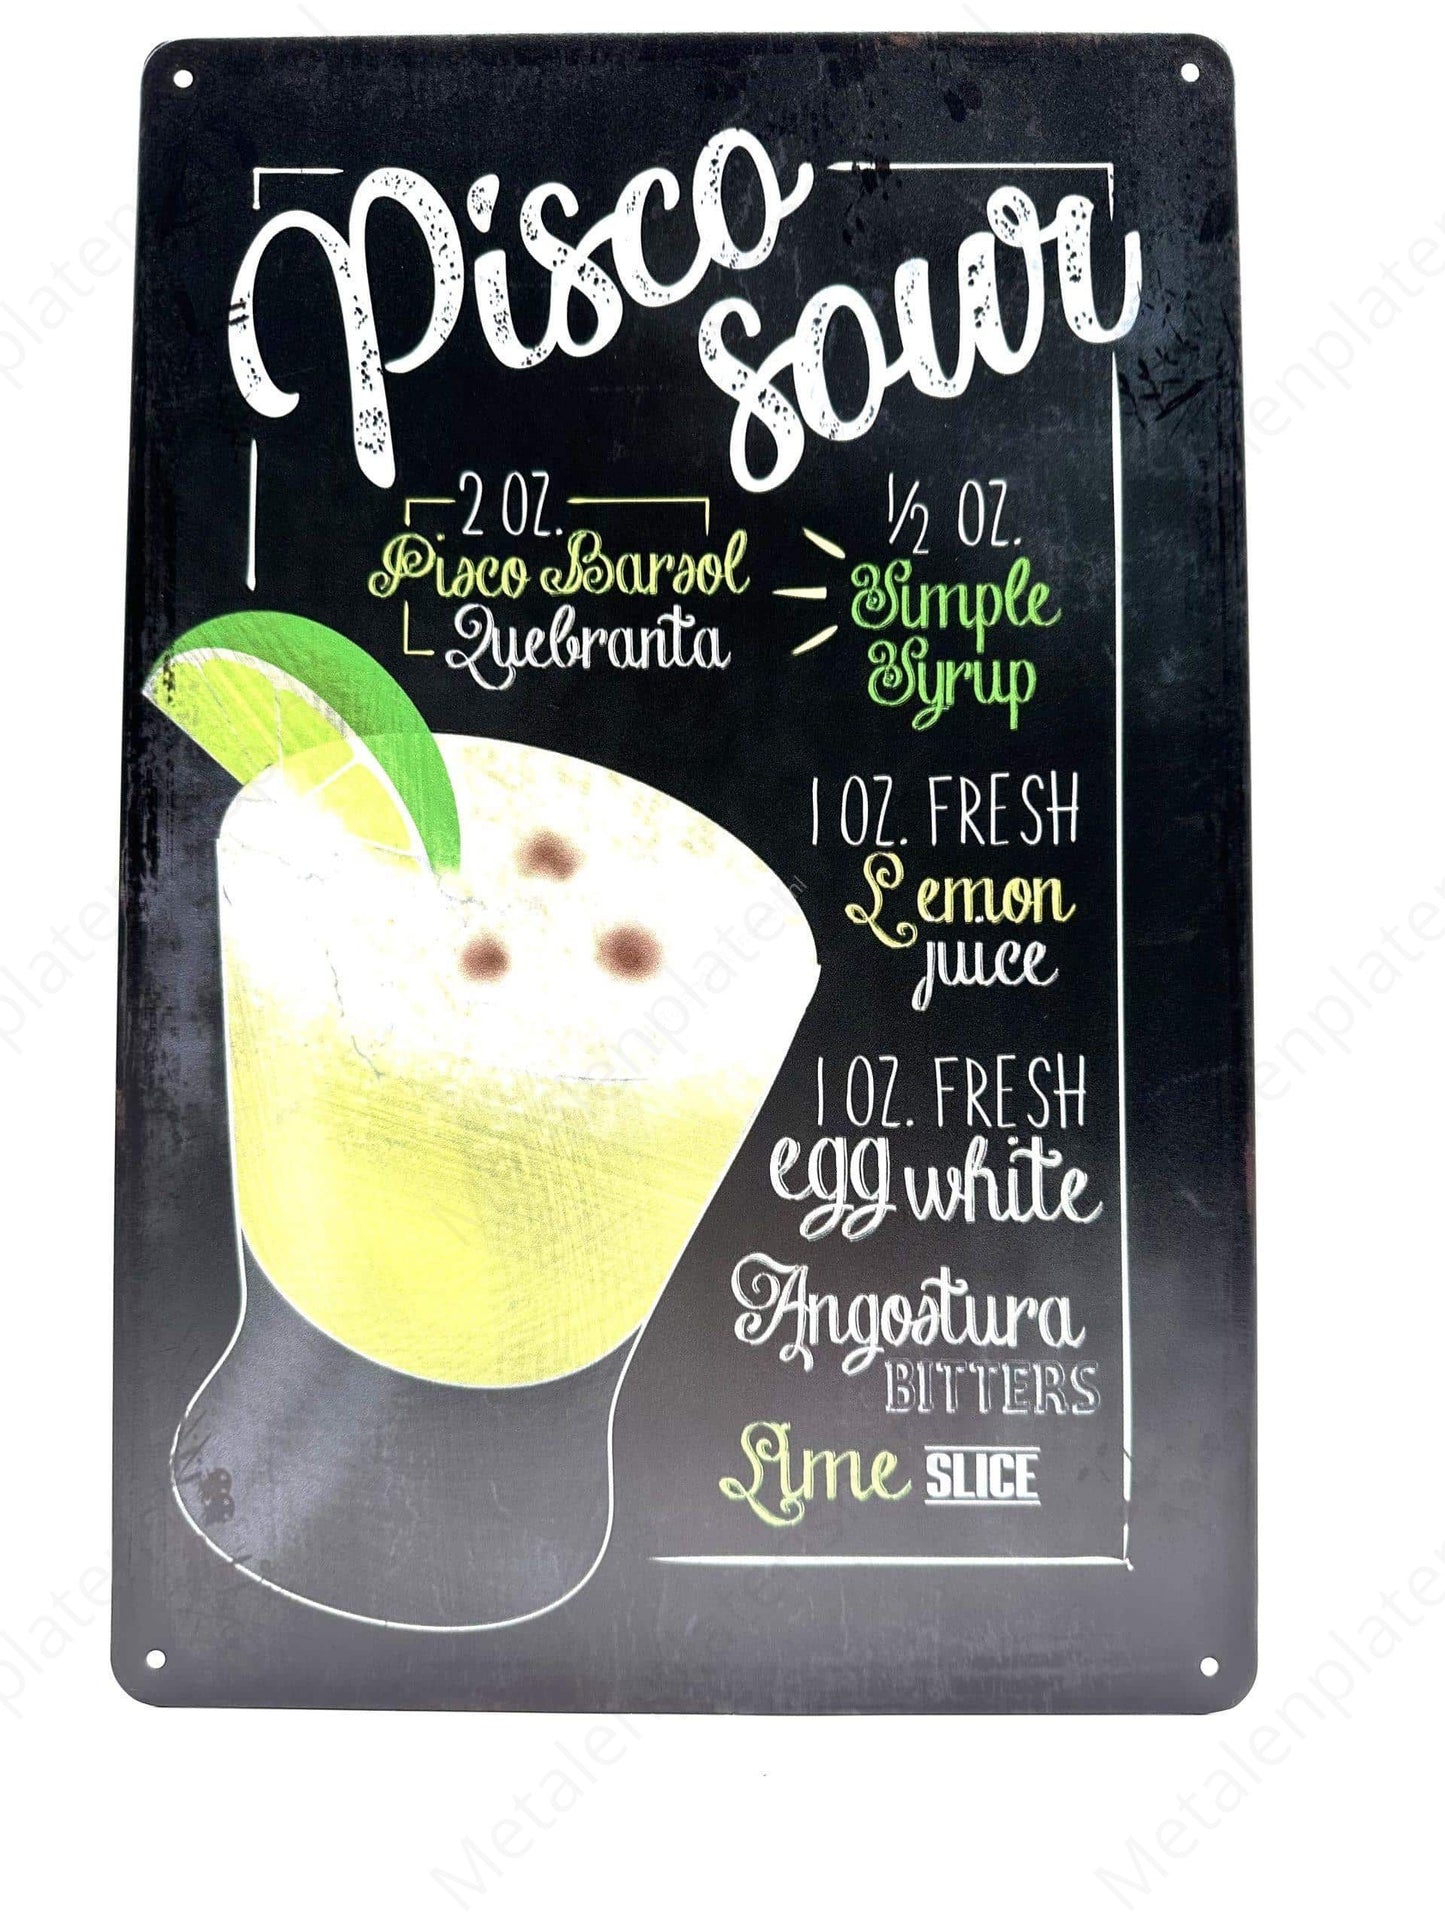 Pisco
sour
2 OZ.
Pisco Barsol
Quebranta
1/2 OZ.
Simple
Syrup
1 OZ. FRESH
Lemon
juice
1 OZ. FRESH
egg white
Angostura
BITTERS
Lime SLICE
Metalenplaten.nl